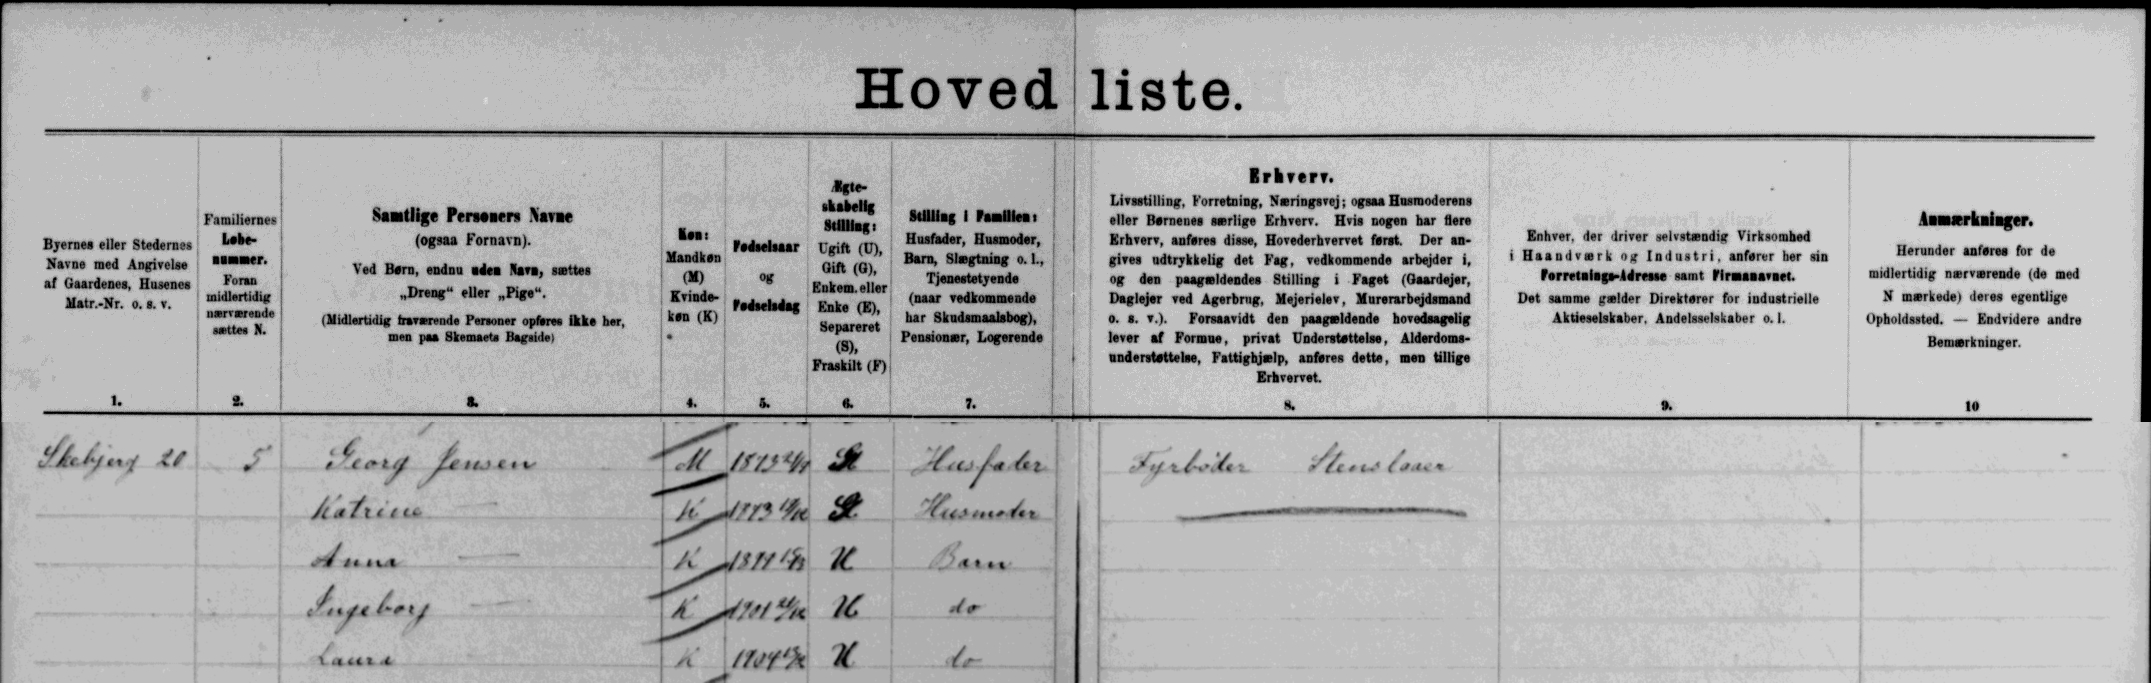 Hovedliste.
Byernes eller Stedernes
Navne med Angivelse
af Gaardenes, Husenes
Matr.-Nr. o. s. v.
1.
Familiernes
Løbe-
nummer.
Foran
midlertidig
nærværende
sættes N.
2.
Samtlige Personers Navne
(ogsaa Fornavn).
Ved Børn, endnu uden Navn, sættes
„Dreng“ eller „Pige“.
(Midlertidig fraværende Personer opføres ikke her,
men paa Skemaets Bagside)
3.
Køn:
Mandkøn
(M)
Kvinde-
køn (K)
4.
Fødselsaar
og
Fødselsdag
5.
Ægte-
skabelig
Stilling:
Ugift (U),
Gift (G),
Enkem. eller
Enke (E),
Separeret
(S),
Fraskilt (F)
6.
Stilling i Familien:
Husfader, Husmoder,
Barn, Slægtning o. l.,
Tjenestetyende
(naar vedkommende
har Skudsmaalsbog),
Pensionær, Logerende
7.
Erhverv.
Livsstilling, Forretning, Næringsvej; ogsaa Husmoderens
eller Børnenes særlige Erhverv. Hvis nogen har flere
Erhverv, anføres disse, Hovederhvervet først. Der an-
gives udtrykkelig det Fag, vedkommende arbejder i,
og den paagældendes Stilling i Faget (Gaardejer,
Daglejer ved Agerbrug, Mejerielev, Murerarbejdsmand
o. s. v.). Forsaavidt den paagældende hovedsagelig
lever af Formue, privat Understøttelse, Alderdoms-
understøttelse, Fattighjælp, anføres dette, men tillige
Erhvervet.
8.
Enhver, der driver selvstændig Virksomhed
i Haandværk og Industri, anfører her sin
Forretnings-Adresse samt Firmanavnet.
Det samme gælder Direktører for industrielle
Aktieselskaber, Andelsselskaber o. l.
9.
Anmærkninger.
Herunder anføres for de
midlertidig nærværende (de med
N mærkede) deres egentlige
Opholdssted. — Endvidere andre
Bemærkninger.
10
Skebjerg 20 5 Georg Jensen M 1873 Husfader Fyrbøder Stenslaaer
Katrine — K 1873 Husmoder
Anna — K U Barn
Ingeborg — K 1901 U do
Laura K 1904 U do